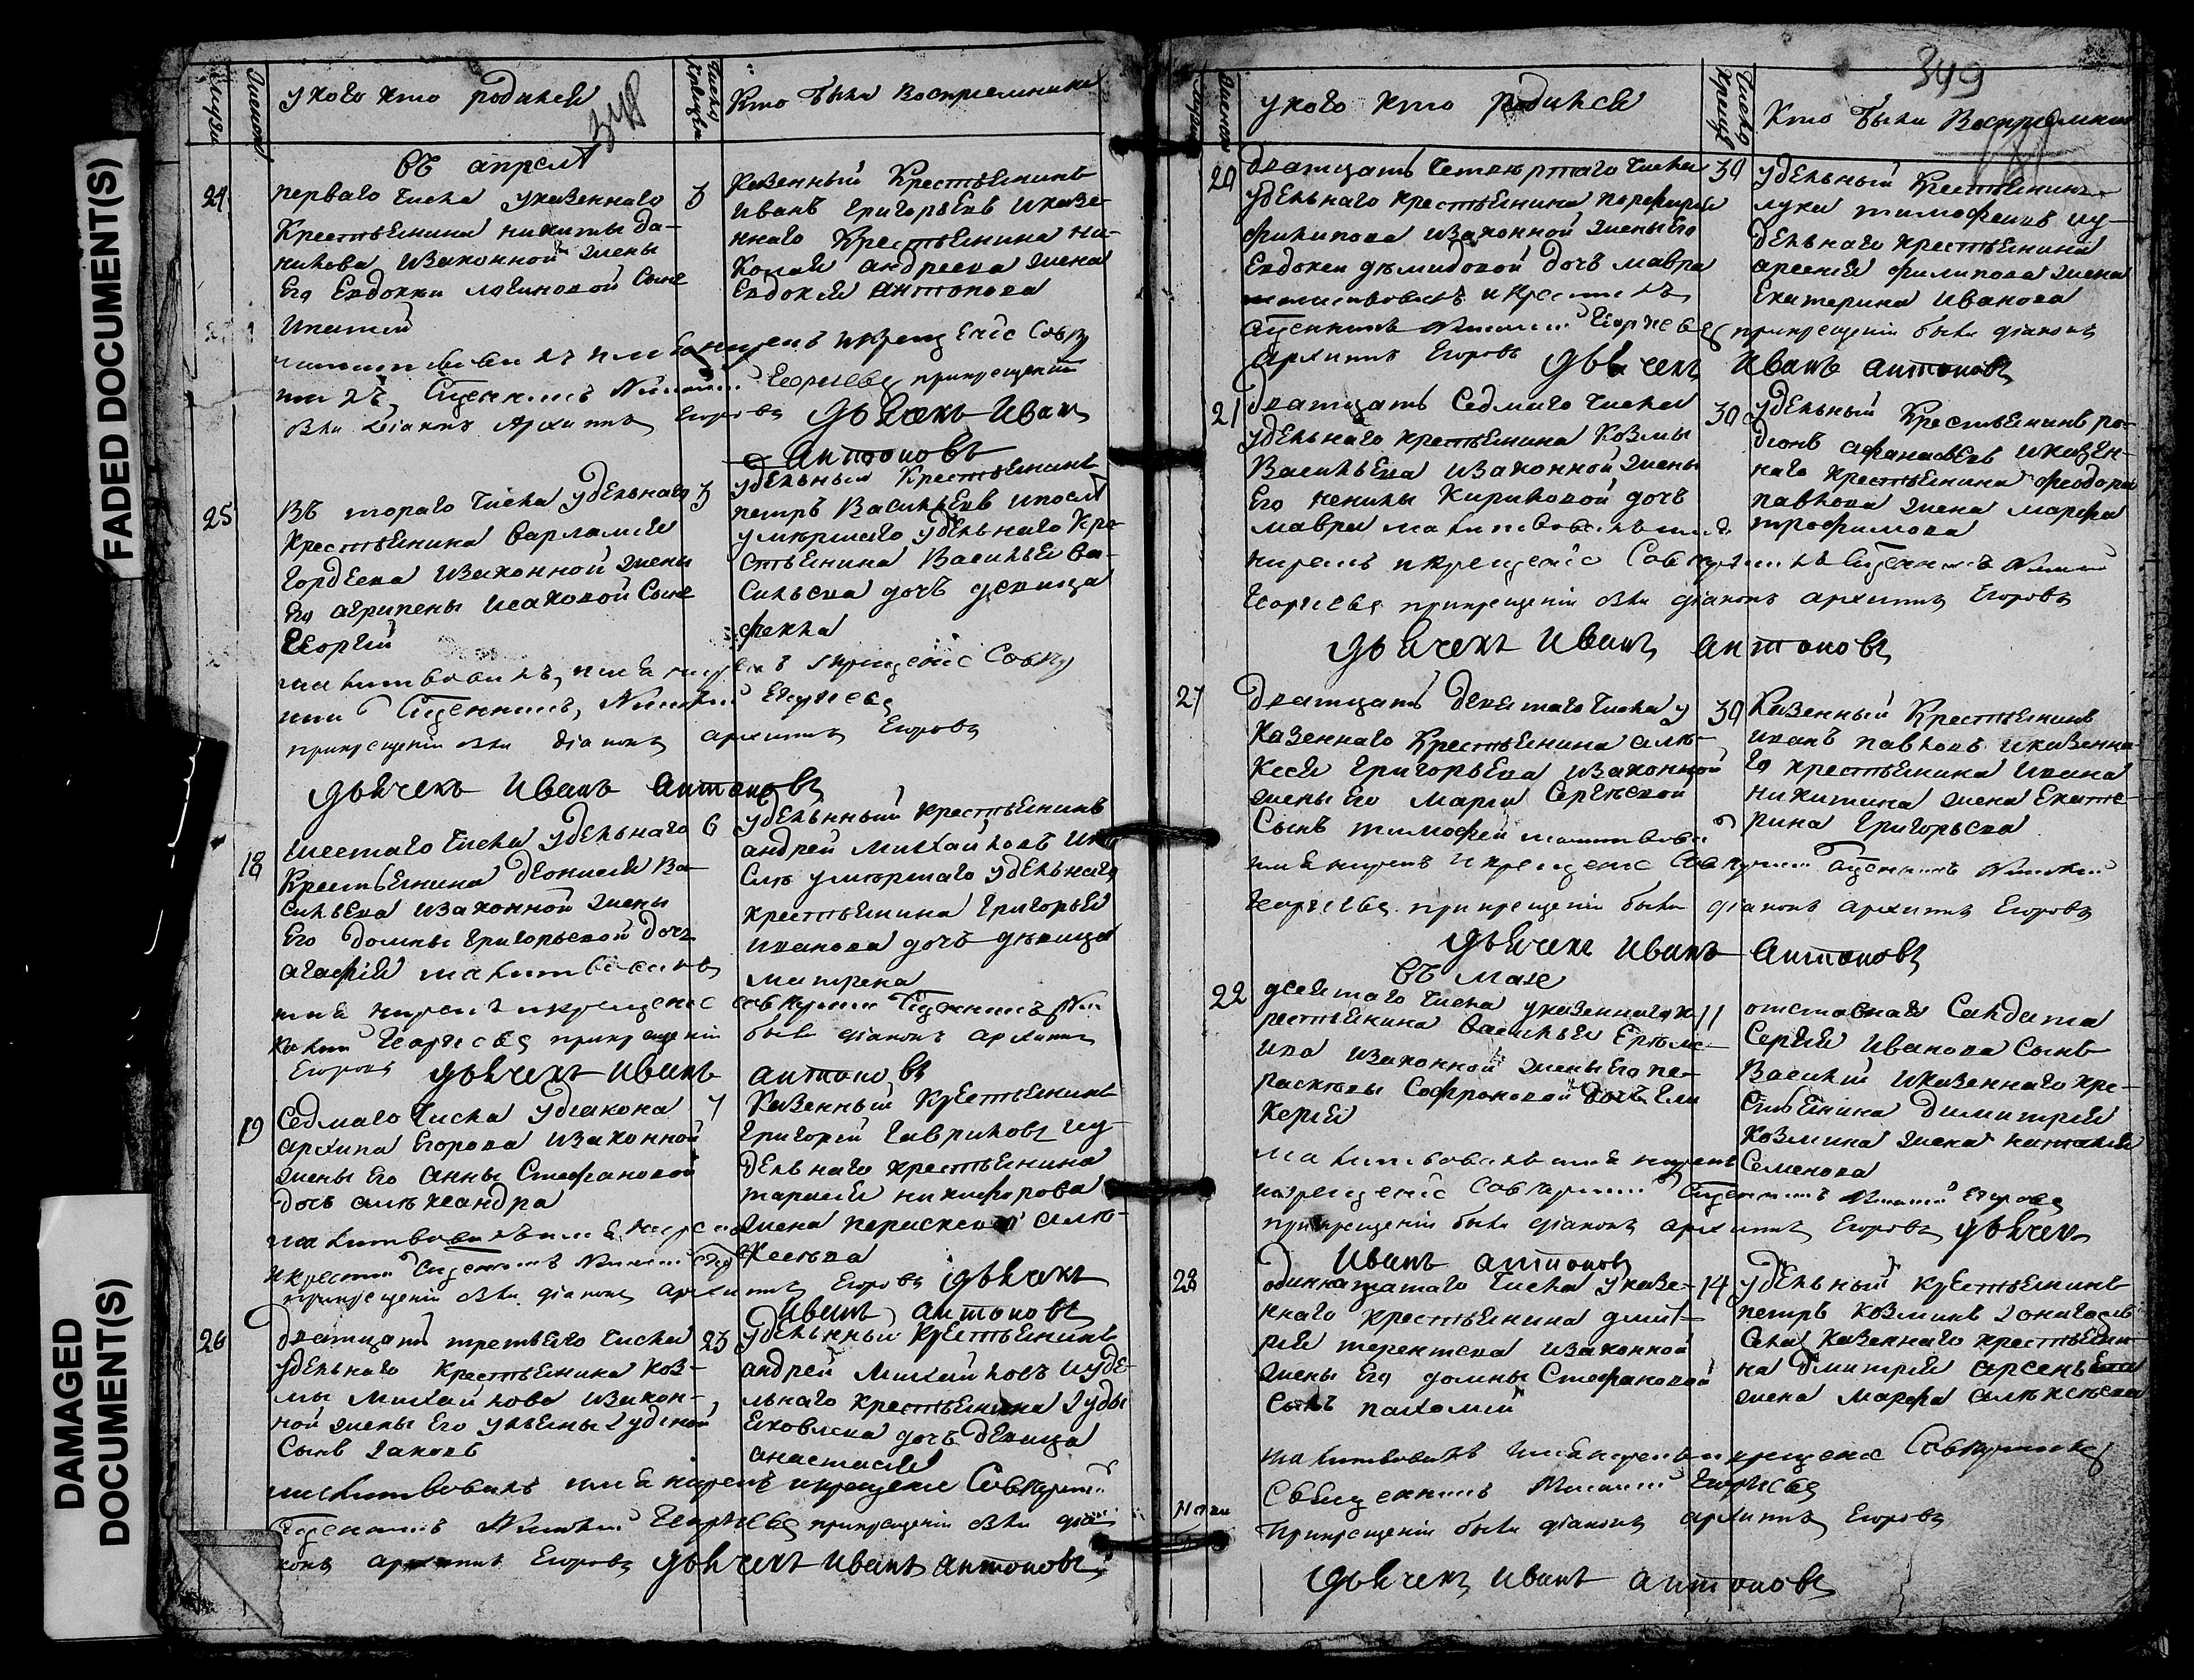 FADED DOCUMENT(S)
DAMAGED
DOCUMENT(S)
у кого кто родился
Число
Кто были Восприемники
въ апреле
24
перваго числа у казеннаго
Крестьянина никиты да-
нилова изаконной жены
Его Евдокии логиновой Сынъ
3
Казенный Крестьянинъ
иванъ григорьевъ иказе-
ннаго Крестьянина ни-
колай андреева жена
Евдокия антонова
Сщенникъ Георгиевъ прикрещении
были дiаконъ Архипъ Егоровъ дьячекъ Иванъ
антоновъ
25
Въ тораго числа удельнаго
Крестьянина варламия
гордеева изаконной жены
Его агрипены исаковой Сынъ
Георгий
3
удельный Крестьянинъ
петръ Васильевъ ипосле
умершаго удельнаго Кре-
стьянина Василья Ва-
сильева дочь девица
фекла
молитвовалъ имя нарекъ икрещенiе Совер
шилъ Сщенникъ Георгиевъ
прикрещении были дiаконъ архипъ Егоровъ
дьячекъ Иванъ антоновъ
18
шестаго числа удельнаго
Крестьянина деонисия Ва-
сильева изаконной жены
Его домны григорьевой дочь
агафия молитвовалъ
6
удельный крестьянинъ
андрей михайловъ ипо
сле умершаго удельнаго
крестьянина григорья
иванова дочь девица
матрена
имя нарекъ икрещенiе совершилъ Сщенникъ
Георгиевъ прикрещении были дiаконъ архипъ
Егоровъ дьячекъ Иванъ антоновъ
19
Седмаго числа удiакона
архипа Егорова изаконной
жены Его анны Стефановой
дочь александра
7
Казенный крестьянинъ
григорий гавриловъ иу-
дельнаго крестьянина
тарасия никифорова
жена параскева алек-
сеева
молитвовалъ имя нарекъ
икрестилъ Сщенникъ
прикрещении были дiаконъ архипъ Егоровъ дьячекъ
Иванъ антоновъ
26
дватцать третьяго числа
удельнаго Крестьянина коз-
мы михайлова изакон-
ной жены Его ульяны Iудиной
Сынъ Iаковъ
23
удельнный крестьянинъ
андрей михайловъ иуде-
льнаго крестьянина Iуды
яковлева дочь девица
анастасия
молитвовалъ имя нарекъ икрещенiе Совершилъ
Сщенникъ Георгиевъ прикрещении были дiа
конъ архипъ Егоровъ дьячекъ Иванъ антоновъ
349
у кого кто родился
Число
Кто были Восприемники
20
дватцать четвертаго числа
удельнаго крестьянина перфирия
филипова изаконной жены Его
Евдокеи демидовой дочь мавра
молитвовалъ икрестилъ
30
удельный Крестьянинъ
лука тимофеевъ иу-
дельнаго крестьянина
арсения филипова жена
Екатерина Иванова
Сщенникъ Георгиевъ прикрещении были дiаконъ
архипъ Егоровъ дьячекъ Иванъ антоновъ
21
дватцать Седмаго числа
удельнаго крестьянина козмы
Васильева изаконной жены
Его ненилы Кириловой дочь
мавра молитвовалъ имя
30
удельный Крестьянинъ ро-
дионъ афанасьевъ иказен-
наго крестьянина феодора
павлова жена марфа
трофимова
нарекъ икрещенiе Совершилъ Сщенникъ
Георгиевъ прикрещении были дiаконъ архипъ Егоровъ
дьячекъ Иванъ антоновъ
27
дватцать девятаго числа у
казеннаго Крестьянина але-
ксея григорьева изаконной
жены Его марьи Сергеевой
Сынъ тимофей молитвовалъ
30
Казенный Крестьянинъ
иванъ павловъ иказенна-
го крестьянина ивана
никитина жена Екате-
рина григорьева
имя нарекъ икрещенiе Совершилъ Сщенникъ
Георгиевъ прикрещении были дiаконъ архипъ Егоровъ
дьячекъ Иванъ антоновъ
въ мае
22
десятаго числа указеннаго к
рестьянина василья Ереме-
ива изаконной жены Его па-
расковы Софроновой дочь гли
керия
11
отставнаго Салдата
Сергия иванова Сынъ
Василий иказеннаго кре-
стьянина димитрия
козмина жена наталия
Семенова
молитвовалъ имя нарекъ
икрещенiе Совершилъ Сщенникъ
прикрещении были дiаконъ архипъ Егоровъ дьячекъ
Иванъ антоновъ
28
одиннатцатаго числа указе-
ннаго крестьянина дмит-
рия терентева изаконной
жены Его домны Стефановой
Сынъ пахомий
14
удельный крестьянинъ
петръ козминъ
Села казеннаго крестьяни-
на дмитрия арсеньева
жена марфа алексеева
молитвовалъ имя нарекъ икрещенiе Совершилъ
Священникъ Георгиевъ
Прикрещении были дiаконъ архипъ Егоровъ
дьячекъ Иванъ антоновъ